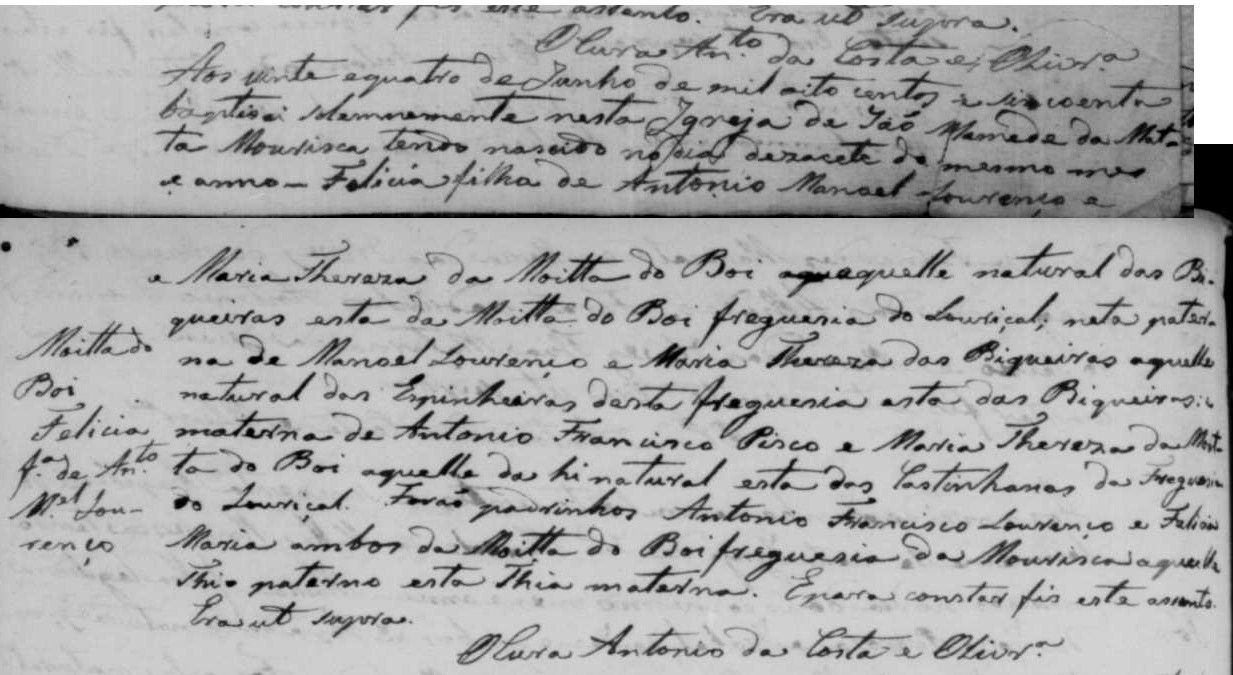 para constar fis este assento. Era ut supora.
O Cura An.to da Costa e Olivr.a
Aos vente equatro de Junho de mil oito centos e sincoenta
baptisei solemnemente nesta Igreja de Saõ Mamede da Mat-
ta Mourisca tendo nascido no dia dezacete do mesmo mes
e anno - Felicia filha de Antonio Manoel Lourenço e
e Maria Thereza da Moitta do Boi aquelle natural das Bi-
queiras esta da Moitta do Boi freguesia do Louriçal; neta pater-
na de Manoel Lourenço e Maria Thereza das Biqueiras aquelle
natural das Espinheiras desta freguesia esta das Biqueiras:
materna de Antonio Francisco Pisco e Maria Thereza da Moit-
ta do Boi aquelle da hi natural esta das Castinhanas da Freguesia
do Louriçal. Foraõ padrinhos Antonio Francisco Lourenço e Felicia
Maria ambos da Moitta do Boi freguesia da Mourisca aquelle
Thio paterno esta Thia materna. Epara constar fis este assento.
Era ut supora.
O Cura Antonio da Costa e Olivr.a
Moitta do
Boi
Felicia
f.a de An.to
M.el Lou-
renço